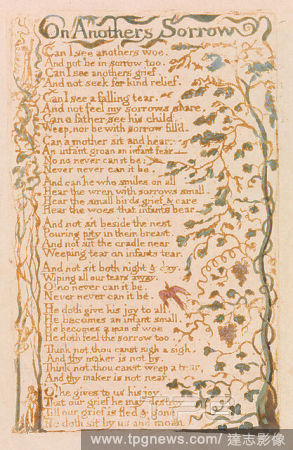 On Anothers Sorrow
Can I see anothers woe,
And not be in sorrow too.
Can I see anothers grief,
And not seek for kind relief.
Can I see a falling tear.
And not feel my sorrows share,
Can a father see his child,
Weep, nor be with sorrow fill'd.
Can a mother sit and hear,
An infant groan an infant fear
No no never can it be,
Never never can it be.
And can he who smiles on all
Hear the wren with sorrows small,
Hear the small birds grief & care
Hear the woes that infants bear
And not sit beside the nest
Pouring pity in their breast,
And not sit the cradle near
Weeping tear on infants tear.
And not sit both night & day,
Wiping all our tears away.
O! no never can it be,
Never never can it be.
He doth give his joy to all,
He becomes an infant small,
He becomes a man of woe
He doth feel the sorrow too.
Think not, thou canst sigh a sigh,
And thy maker is not by.
Think not, thou canst weep a tear,
And thy maker is not near.
O! he gives to us his joy,
That our grief he may destroy
Till our grief is fled & gone
He doth sit by us and moan
www.tpgnews.com / 達志影像